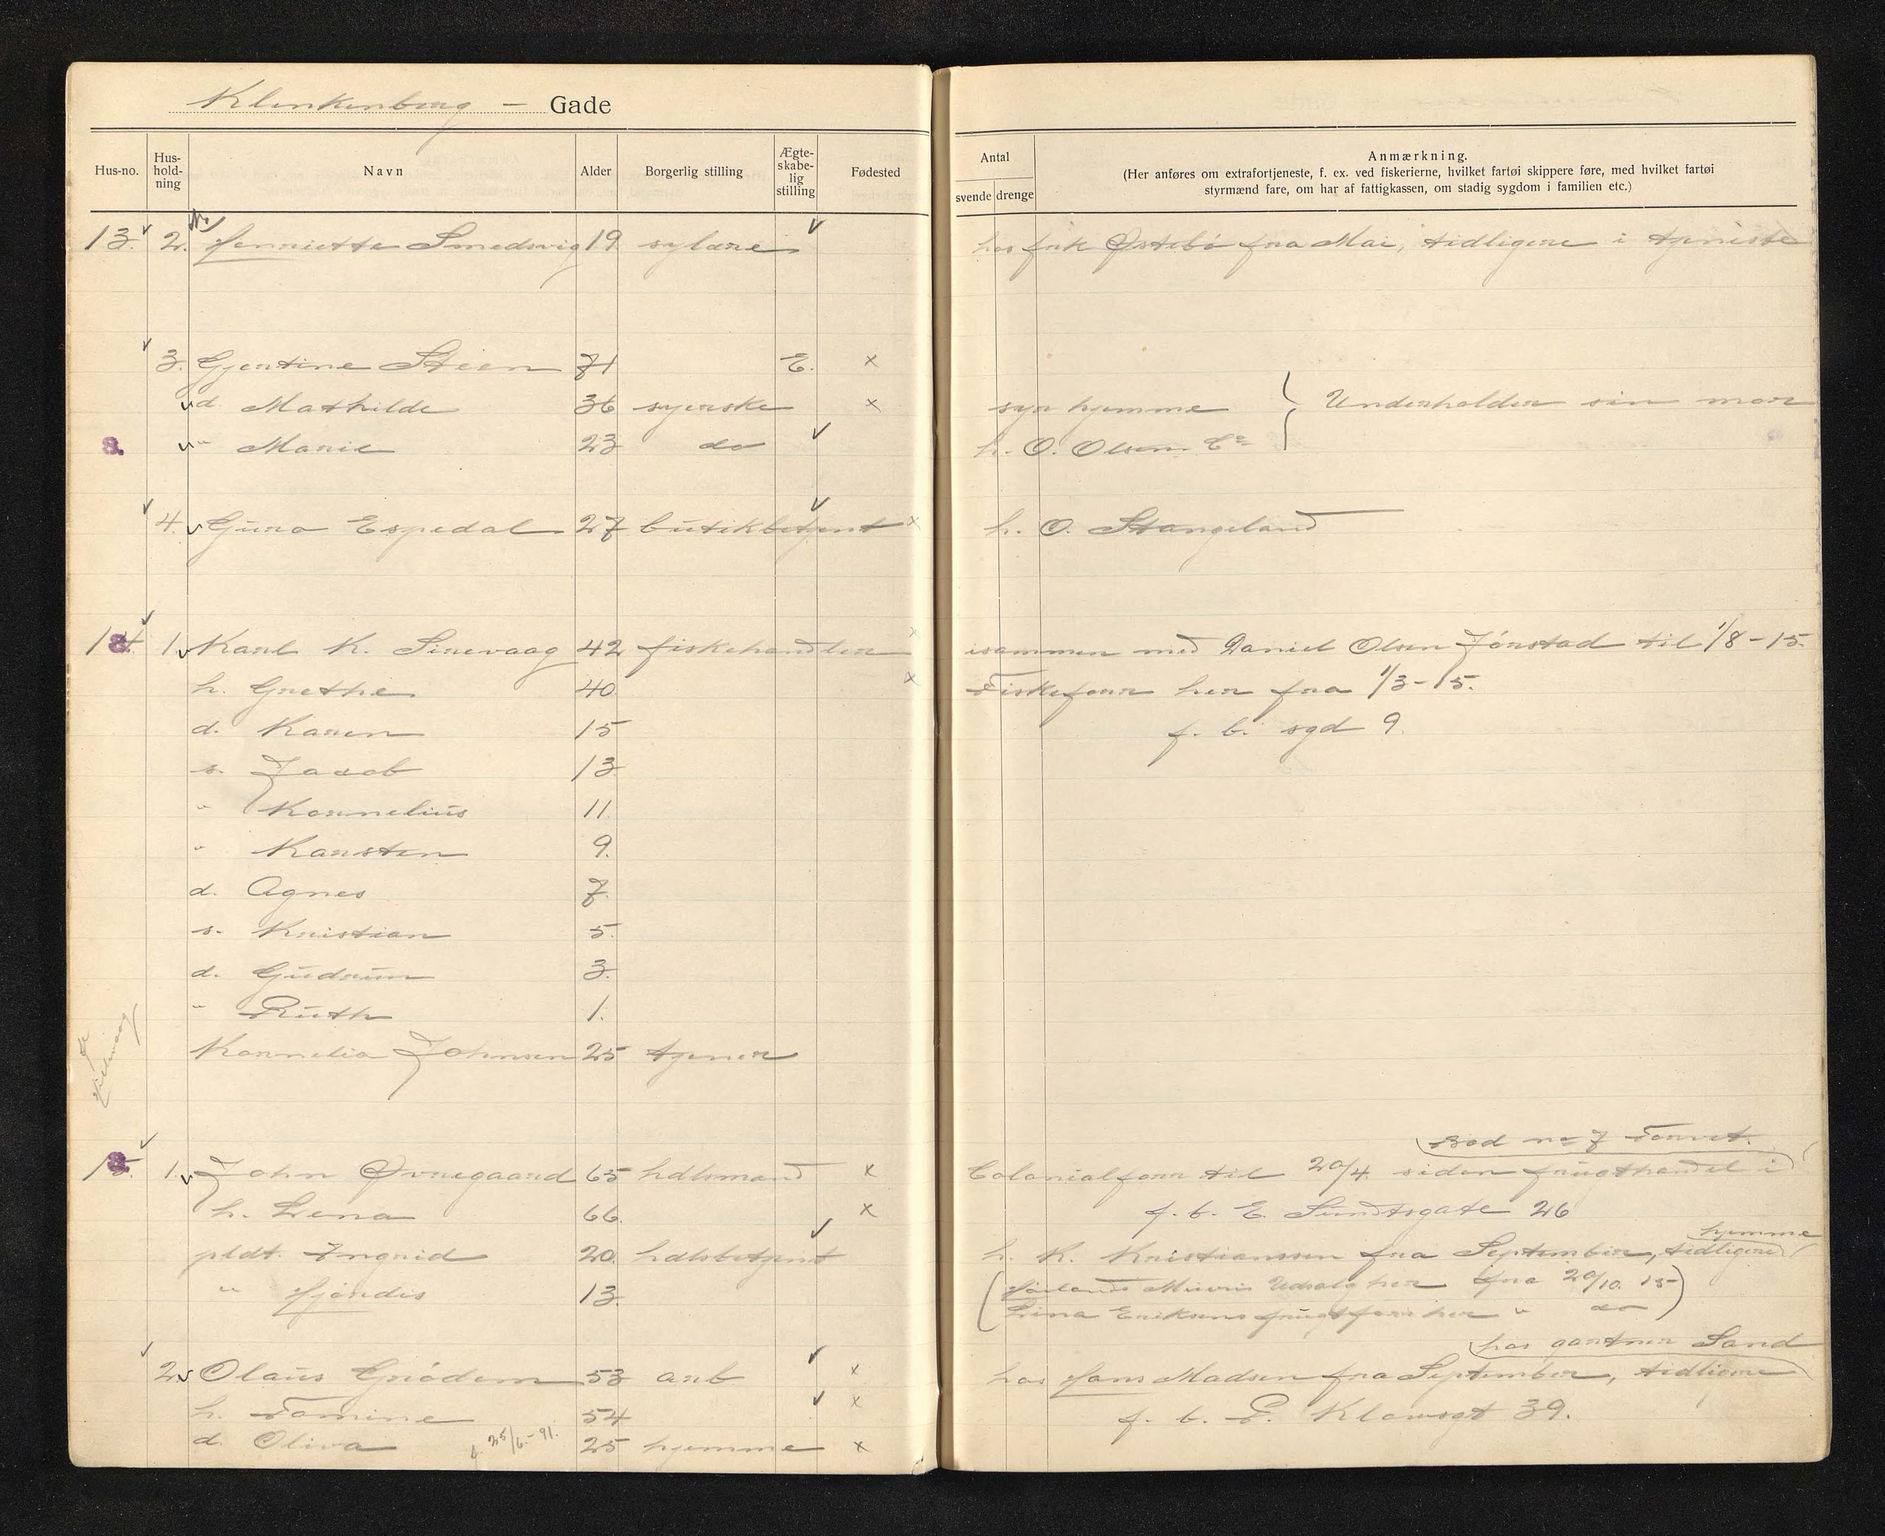 Klinkenberg - Gade
Hus-no. Hus-hold-ning Navn Alder Borgerlig stilling Ægte-skabe-lig stilling Fødested
Antal
svende drenge
Anmærkning.
(Her anføres om extrafortjeneste, f. ex. ved fiskerierne, hvilket fartøi skippere føre, med hvilket fartøi
styrmænd fare, om har af fattigkassen, om stadig sygdom i familien etc.)
13. 2. Henriette Smedsvig 19 sylære hos frk Østebö fra Mai, tidligere i tjeneste
3. Gjertine Steen 71 E. x
d. Mathilde 36 syerske x syr hjemme } Underholder sin mor
" Marie 23 do h. O. Olsen & Co
4. Guro Espedal 27 butikbetjent x h. O. Stangeland
14. 1. Karl K. Sirevaag 42 fiskehandler x isammen med Daniel Olsen Jörstad til 1/8-15.
h. Grethe 40 x Fiskeforr her fra 1/3-15.
d. Karen 15 f. b. sgd 9.
s. Jacob 13
" Kornelius 11
" Karsten 9.
d. Agnes 7.
s. Kristian 5.
d. Gudrun 3.
" Ruth 1.
Kornelia Johnsen 25 tjener
Bod no 7 Torvet.
15. 1. John Øvregaard 65 hdlsmand x Colonialforr til 20/4. siden frugthandel i
h. Lena 66. x f. b. E. Sundtsgate 26
hjemme
pldt. Ingrid 20. hdlsbetjent h. K. Kristianssen fra September, tidligere
" Hjördis 13. Udsalg her fra 20/10. 15
Lina Eriksens frugtforr her " do
hos gartner Sand
2. Olaus Grödem 53 arb x hos Hans Madsen fra September, tidligere
h. Tomine 54 x f. b. P. Klowsgt 39.
d. Oliva f. 25/6.-91. 25 hjemme x